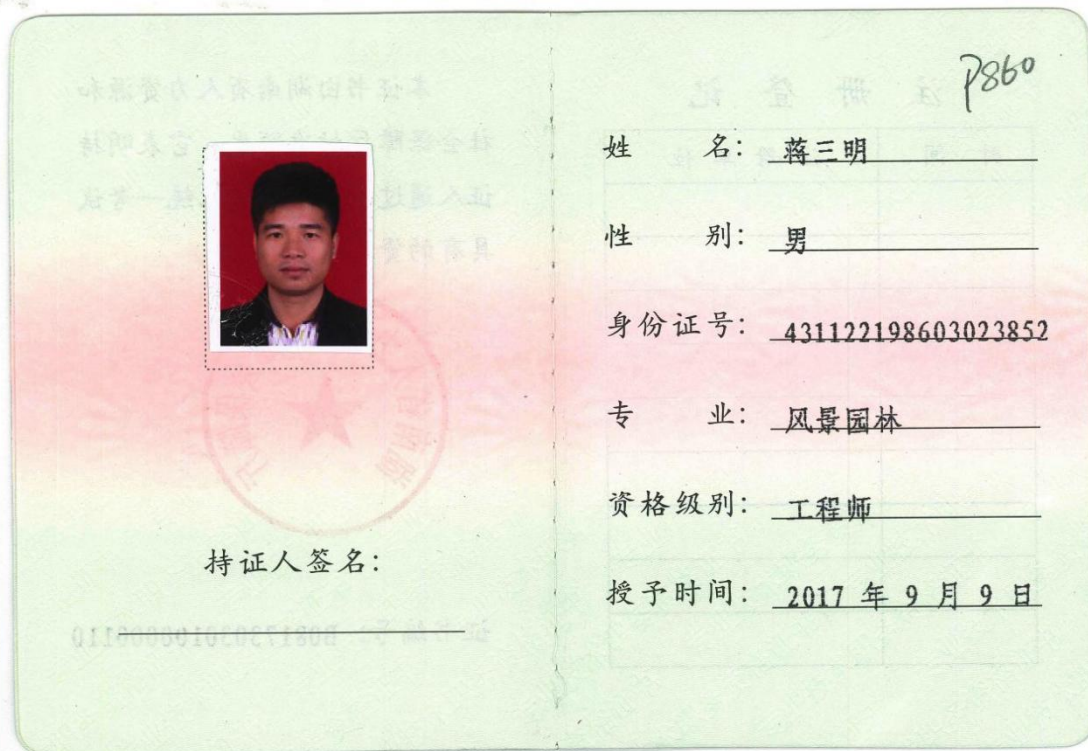 持证人签名:
P860
姓 名: 蒋三明
性 别: 男
身份证号: 431122198603023852
专 业: 风景园林
资格级别: 工程师
授予时间: 2017 年 9 月 9 日